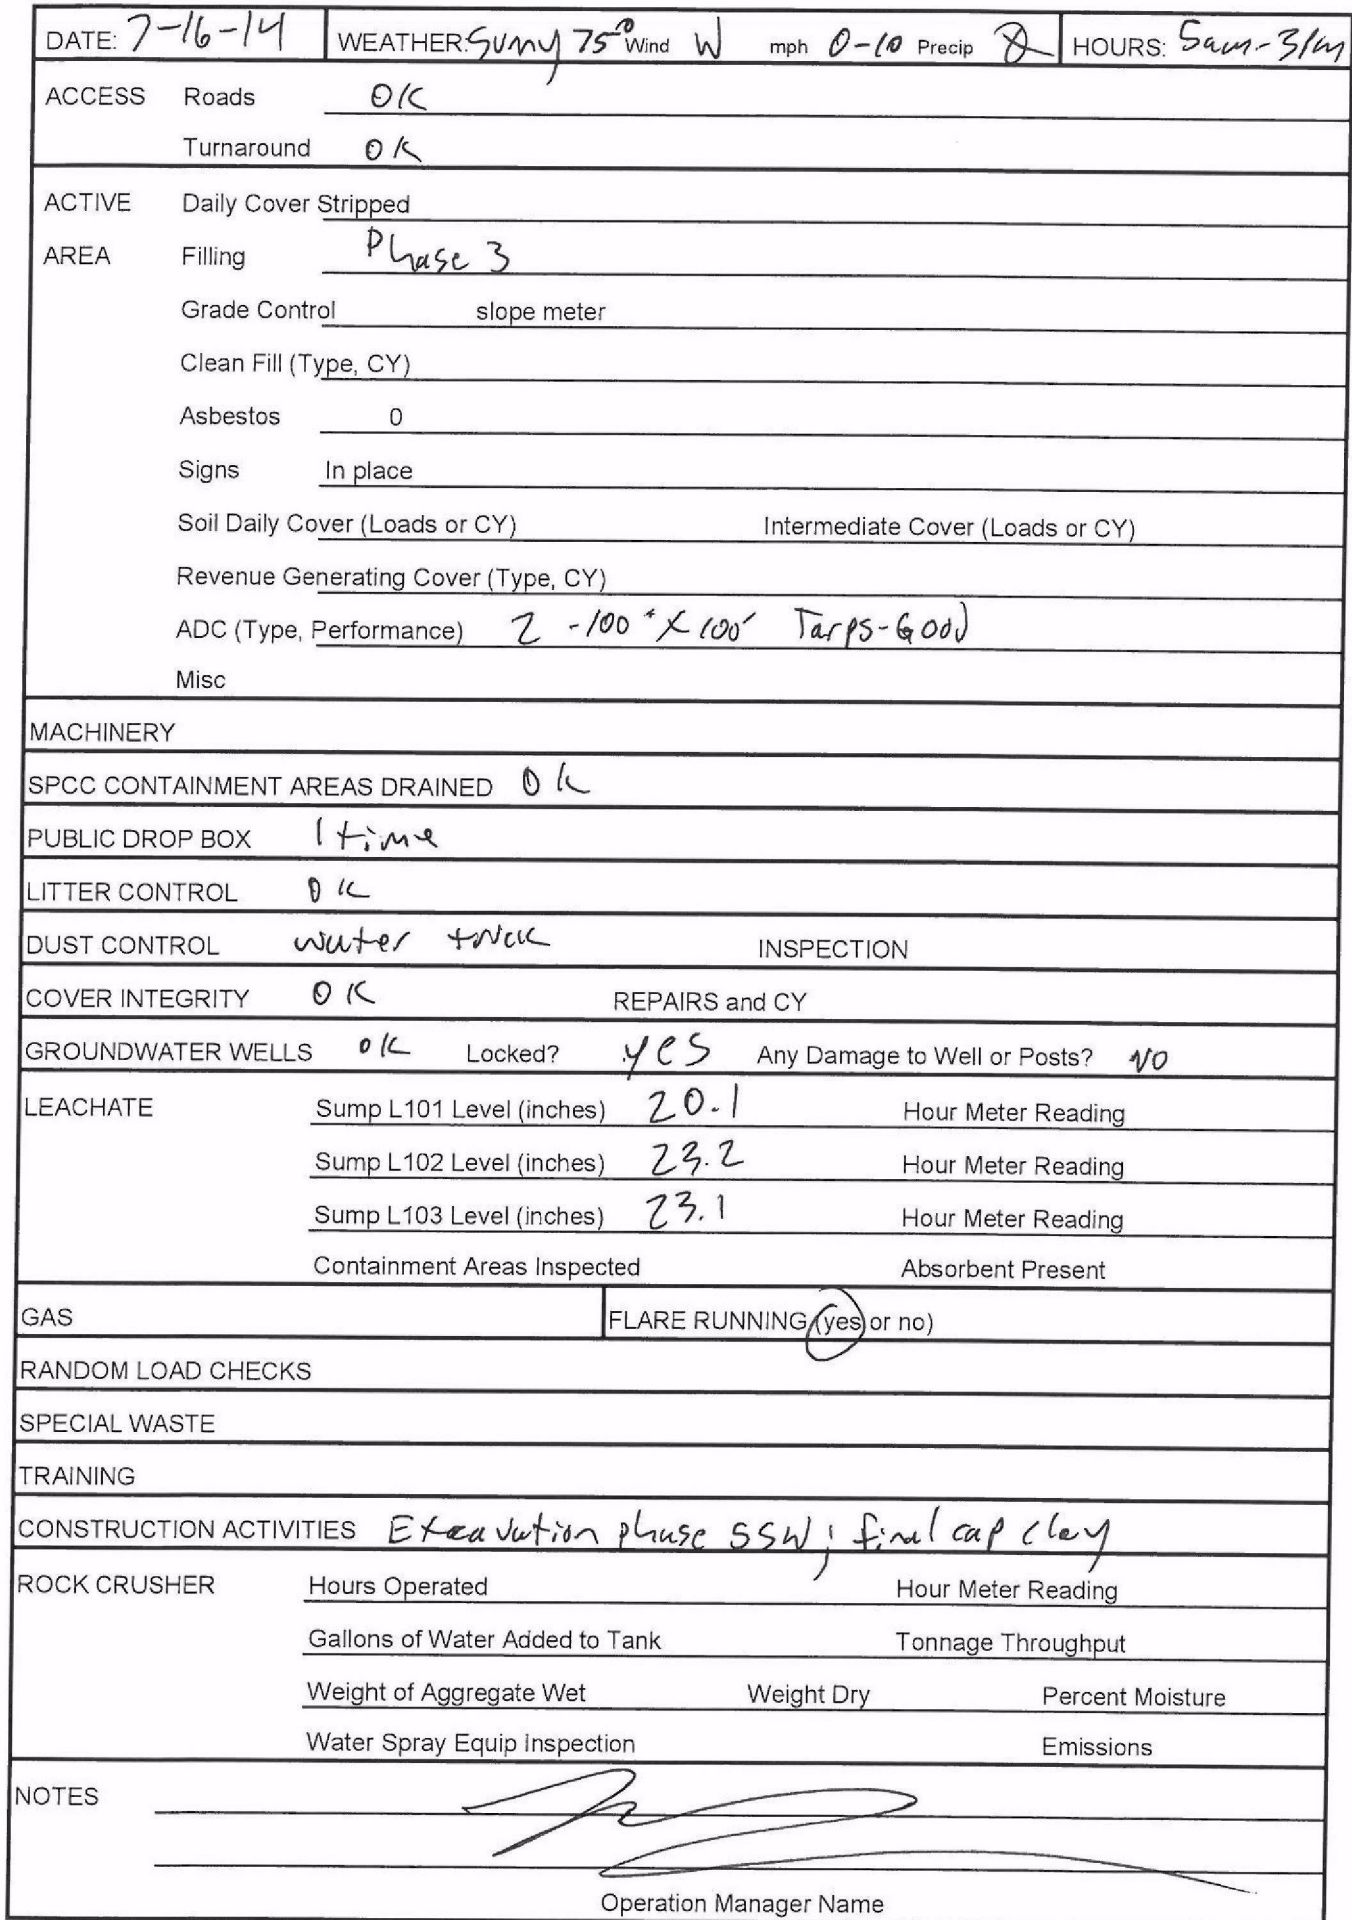 DATE: 7-16-14 WEATHER: Sunny 75° Wind W mph 0-10 Precip 0 HOURS: 5am-3pm
ACCESS Roads OK
Turnaround OK
ACTIVE Daily Cover Stripped
AREA Filling Phase 3
Grade Control slope meter
Clean Fill (Type, CY)
Asbestos 0
Signs In place
Soil Daily Cover (Loads or CY) Intermediate Cover (Loads or CY)
Revenue Generating Cover (Type, CY)
ADC (Type, Performance) 2 -100' X 100' Tarps-Good
Misc
MACHINERY
SPCC CONTAINMENT AREAS DRAINED OK
PUBLIC DROP BOX 1 time
LITTER CONTROL OK
DUST CONTROL water truck INSPECTION
COVER INTEGRITY OK REPAIRS and CY
GROUNDWATER WELLS OK Locked? yes Any Damage to Well or Posts? NO
LEACHATE Sump L101 Level (inches) 20.1 Hour Meter Reading
Sump L102 Level (inches) 23.2 Hour Meter Reading
Sump L103 Level (inches) 23.1 Hour Meter Reading
Containment Areas Inspected Absorbent Present
GAS FLARE RUNNING (yes or no)
RANDOM LOAD CHECKS
SPECIAL WASTE
TRAINING
CONSTRUCTION ACTIVITIES Excavation phase 5SW; final cap clay
ROCK CRUSHER Hours Operated Hour Meter Reading
Gallons of Water Added to Tank Tonnage Throughput
Weight of Aggregate Wet Weight Dry Percent Moisture
Water Spray Equip Inspection Emissions
NOTES
Operation Manager Name